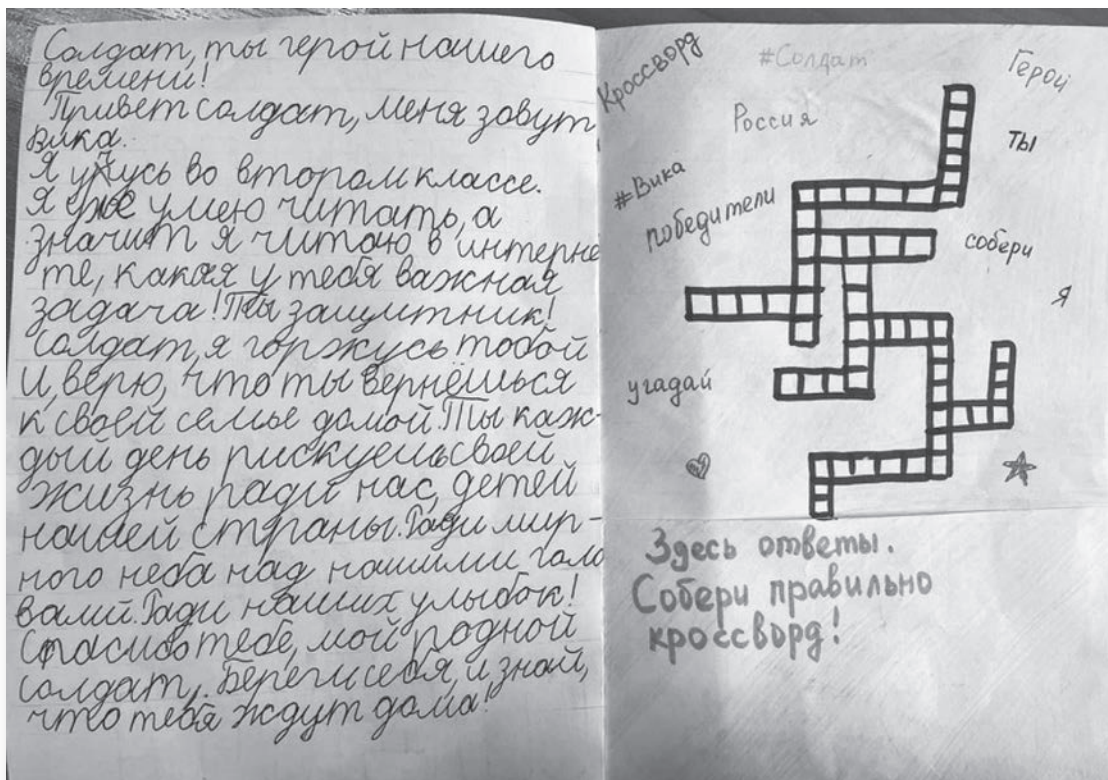 Солдат, ты герой нашего
времени!
Привет солдат, меня зовут
Вика.
Я учусь во втором классе.
Я уже умею читать, а
значит я читаю в интерне
те, какая у тебя важная
задача! Ты защитник!
Солдат, я горжусь тобой
и, верю, что ты вернёшься
к своей семье домой. Ты каж-
дый день рискуешь своей
жизнь ради нас, детей
нашей страны. Ради мир-
ного неба над нашими голо
вами. Ради наших улыбок!
Спасибо тебе, мой родной
солдат,. Береги себя, и знай,
что тебя ждут дома!
Кроссворд
#Солдат
Герой
Россия
ты
#Вика
победители
собери
я
угадай
Здесь ответы.
Собери правильно
кроссворд!